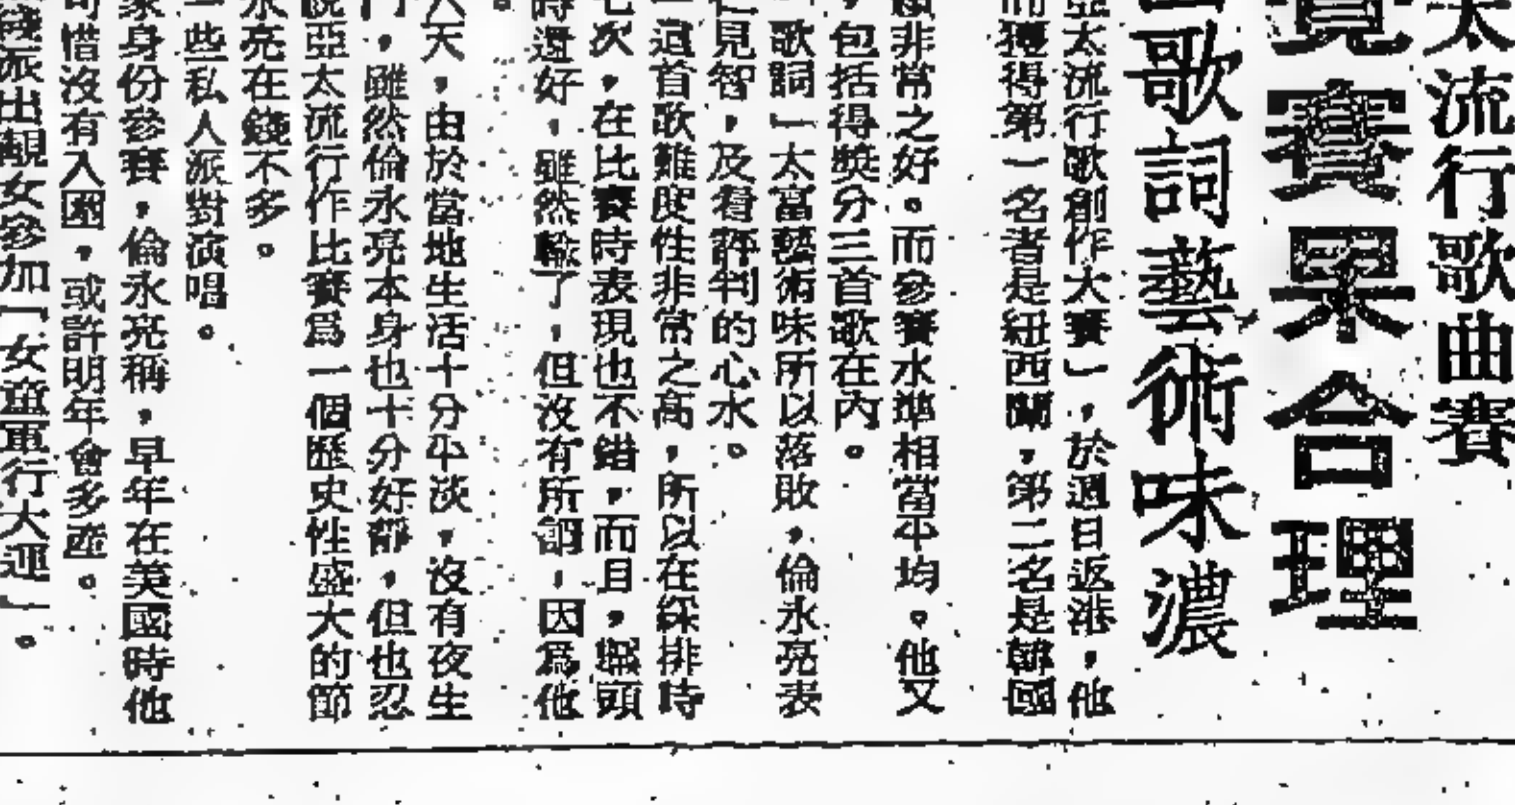 太流行歌曲賽
竟賽果合理
歌詞藝術味濃
亞太流行歌創作大賽」，於週日返港，他
而獲得第一名者是紐西蘭，第二名是韓國
非常之好。而參賽水準相當平均。他又
，包括得獎分三首歌在內。
歌詞」太富藝術味所以落敗，倫永亮表
仁見智，及看評判的心水。
這首歌難度性非常之高，所以在綵排時
七次，在比賽時表現也不錯，而且，頭
時還好，雖然輸了，但沒有所謂，因為他
。
六天，由於當地生活十分平淡，沒有夜生
，雖然倫永亮本身也十分好靜，但也忍
說亞太流行作比賽為一個歷史性盛大的節
永亮在錢不多。
一些私人派對演唱。
家身份參賽，倫永亮稱，早年在美國時他
可惜沒有入圍，或許明年會多產。
綫派出靚女參加「女童軍行大運」。